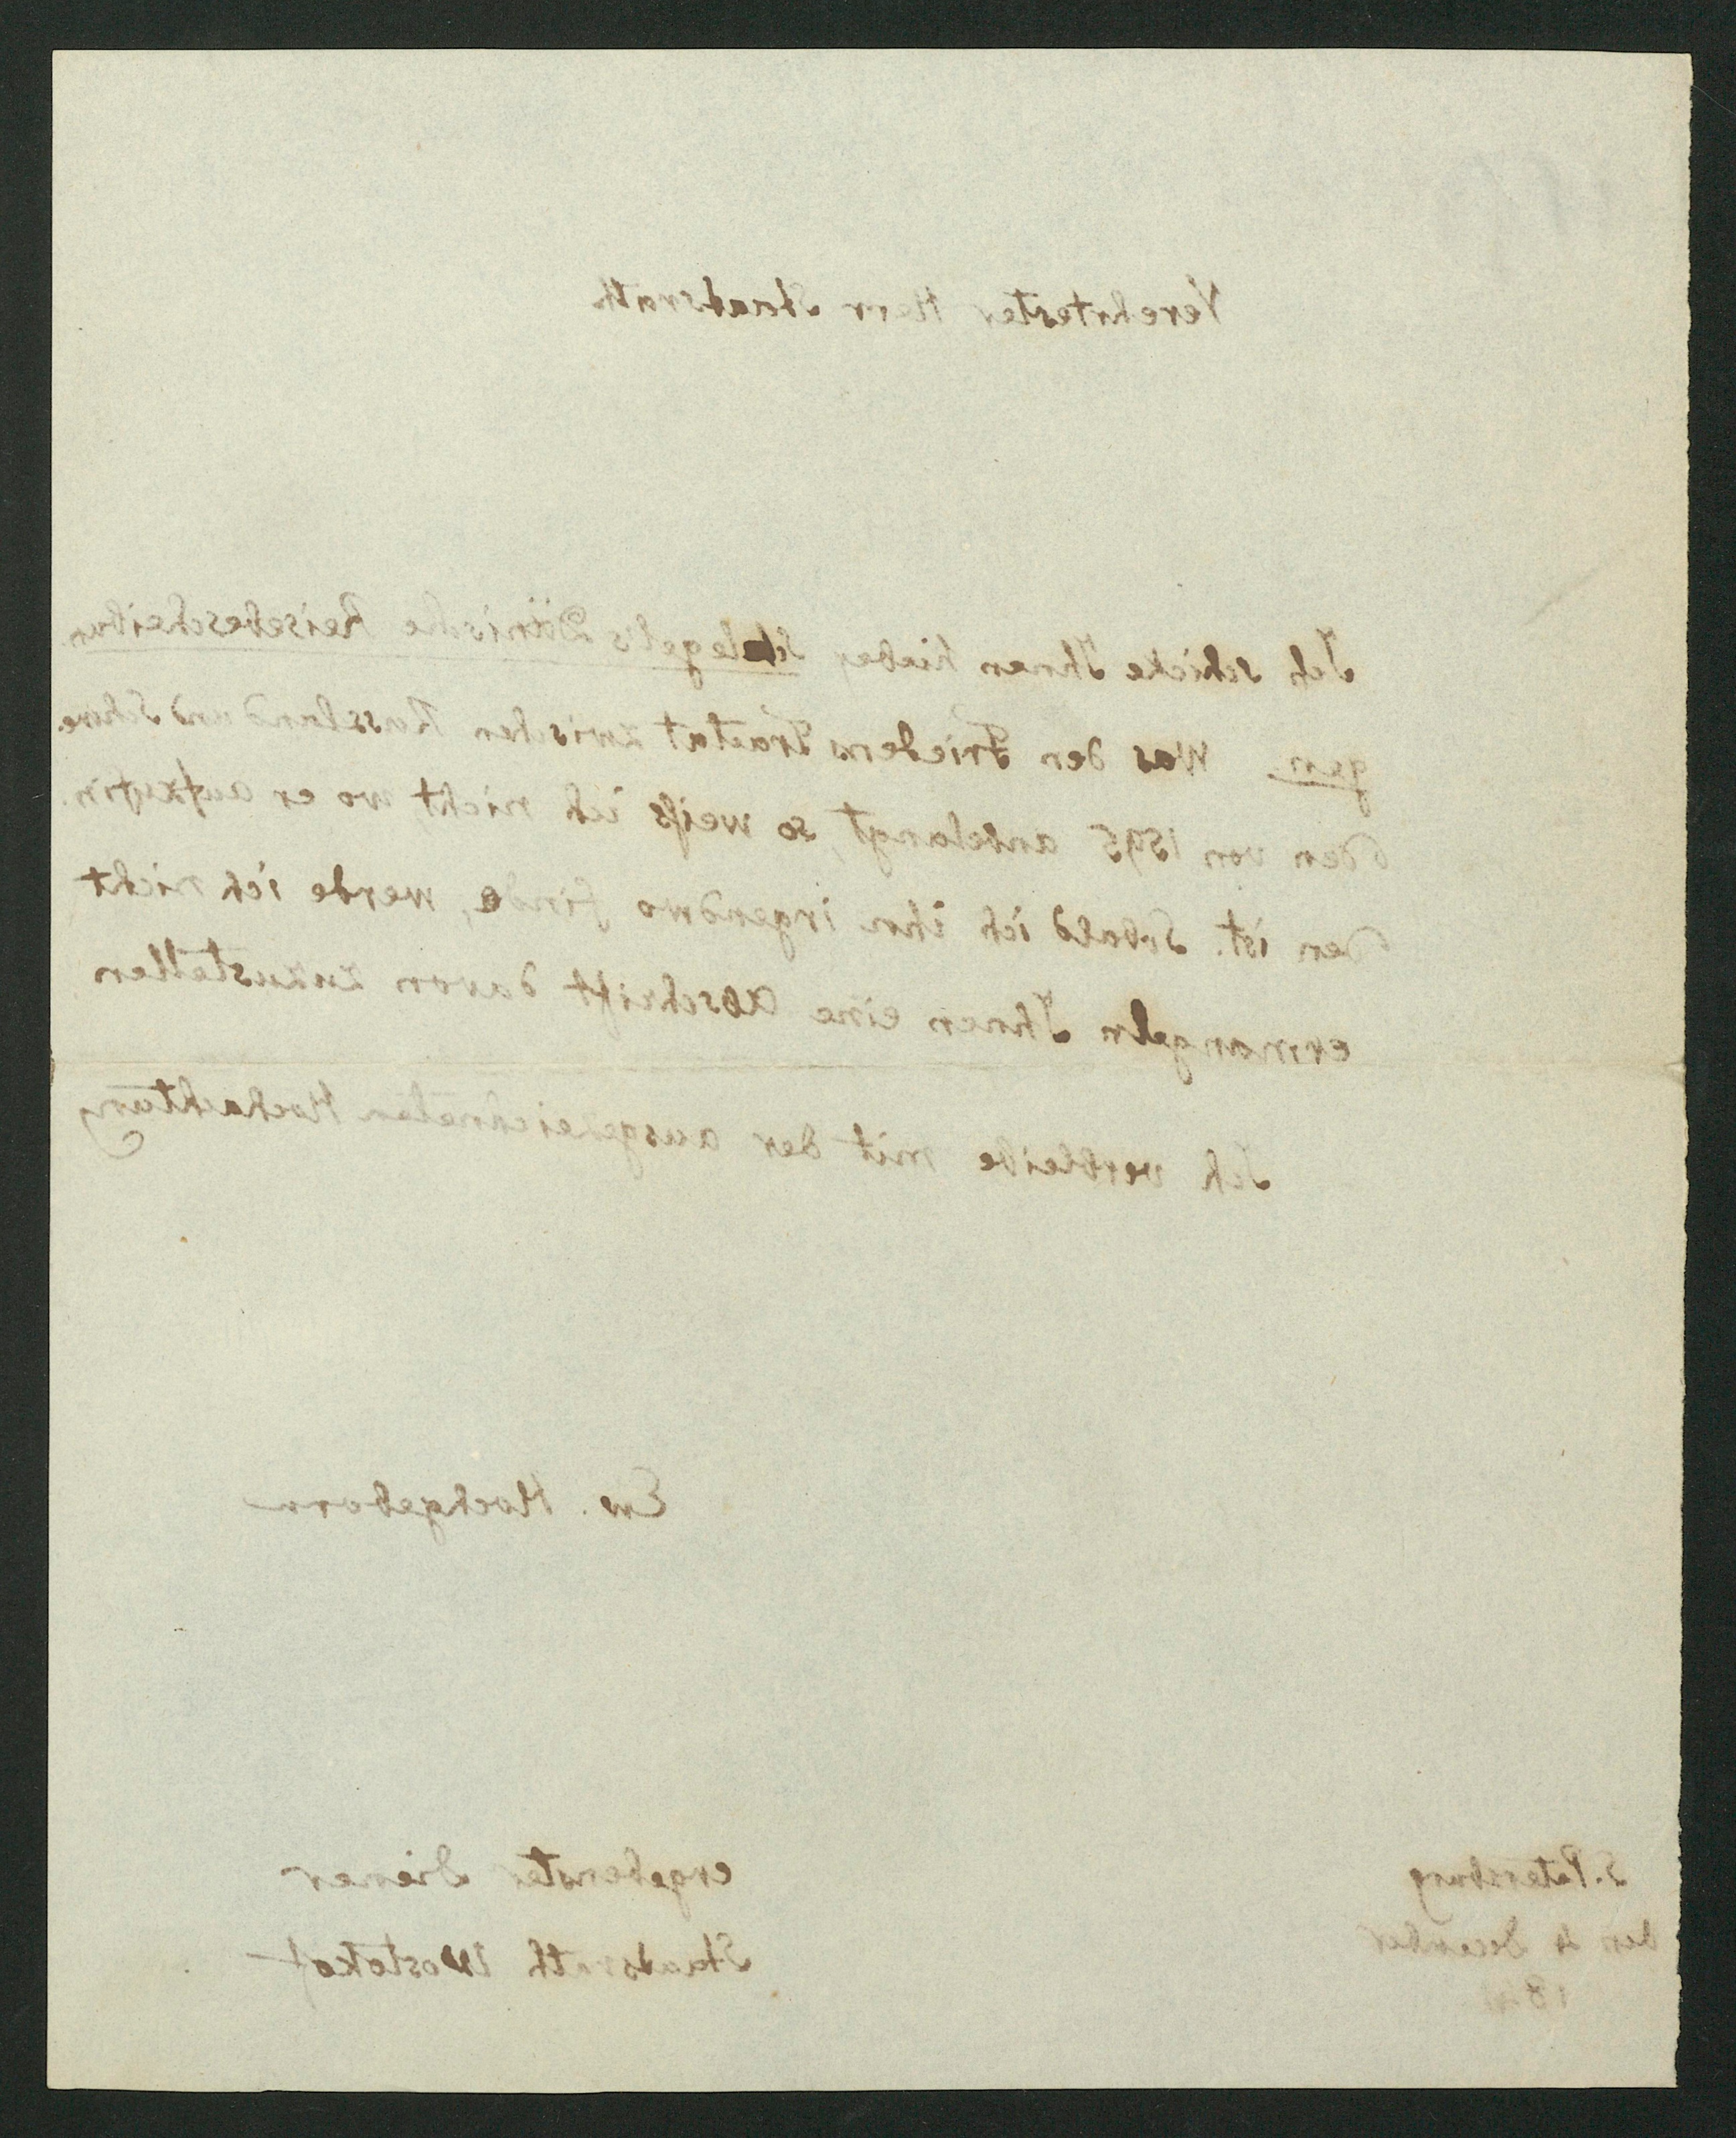 Verehrtester Herr Staatsrath
Ich schicke Ihnen hieber Schlegels Dänische Reisebescheibun
gen. Was den Friedens Tractat zwischen Russland und Schwe-
den von 1595 anbelangt, so weiß ich nicht, wo er aufzufin-
den ist. Sobald ich ihn irgendwo finde, werde ich nicht
ermangeln Ihnen eine Abschrift davon zuzustellen
Ich verbleibe mit der ausgezeichneten Hochachtung
Ew. Hochgeborn
ergebenster Diener
Staatsrath Wostokof
S. Petersburg
den 4 December